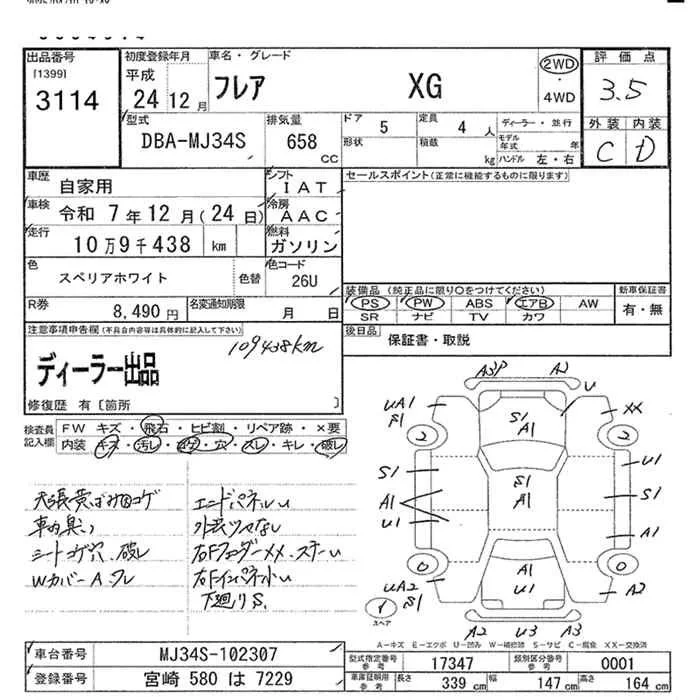 出品番号
[1399]
3114
初度登録年月
平成
24 12 月
車名・グレード
フレア XG
2WD
・
4WD
評価点
3.5
外装 内装
C D
型式
DBA-MJ34S
排気量
658 cc
ドア 5
形状
定員 4 人
積載 kg
ディーラー・並行
モデル年式 年
ハンドル 左・右
車歴
自家用
シフト
IAT
セールスポイント(正常に機能するものに限ります)
車検
令和 7 年 12 月(24 日)
冷房
AAC
走行
10万9千438 km
燃料
ガソリン
色
スペリアホワイト
色替
色コード
26U
装備品(純正品に限り○をつけてください)
新車保証書
PS PW ABS エアB AW
SR ナビ TV カワ
有・無
R券
8,490 円
名変通知期限
月 日
後日品
保証書・取説
注意事項申告欄(不具合内容等は具体的に記入して下さい)
109438km
ディーラー出品
修復歴 有〔箇所 〕
検査員記入欄
FW キズ・飛石・ヒビ割・リペア跡・×要
内装 キズ・汚レ・コゲ・穴・スレ・キレ・破レ
天張黄ばみ凹コゲ
車内臭い
シートコゲ穴、破レ
Wカバー A、ワレ
エンドパネルU
外装ツヤなし
右Fフェンダーxx、ステーU
右Fインパネ小U
下廻りS
A3P A2
UA1 S1
U
XX
2 2
S1 A1
S1 A1
S1
A1
U1
U1
S1
A1
0 0
A1 U1
UA2 S1
A2
1
スペア
A2 U3 A3
A-キズ E-エクボ U-凹み W-補修跡 S-サビ C-腐食 XX-交換済
車台番号
MJ34S-102307
型式指定番号
参考
17347
類別区分番号
参考
0001
登録番号
宮崎 580 は 7229
車庫証明用
参考
長さ 339 cm
幅 147 cm
高さ 164 cm